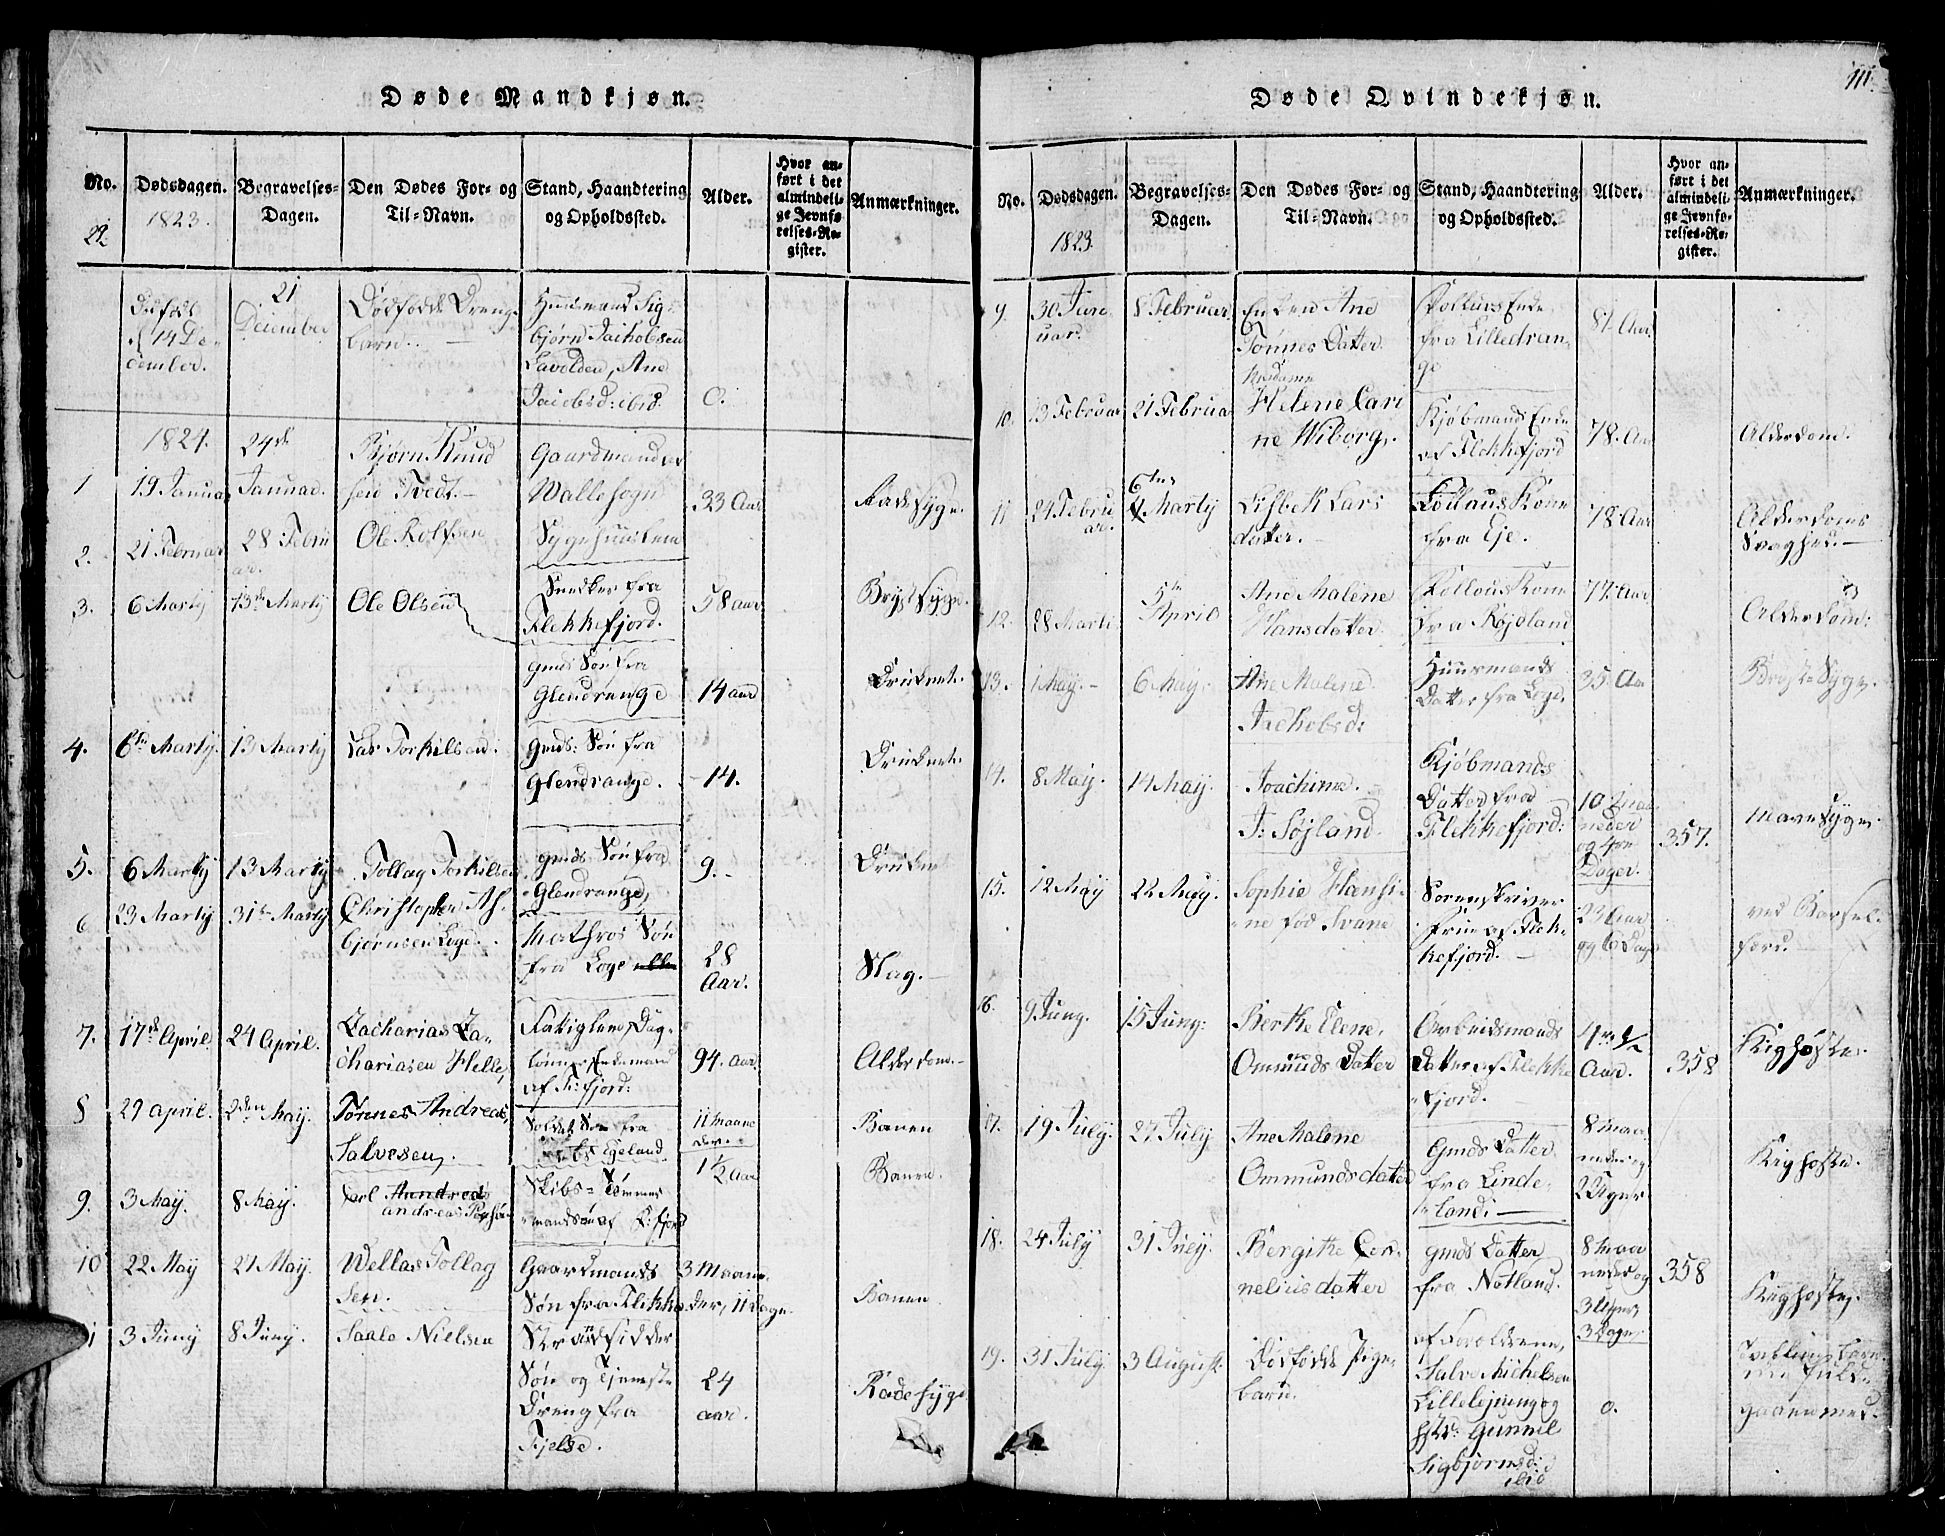 Døde Mandkjøn.
No.
22
Dødsdagen.
1823.
Begravelses-
Dagen.
Den Dødes For- og
Til-Navn.
Stand, Haandtering
og Opholdssted.
Alder.
Hvor an-
ført i det
almindeli-
ge Jevnfø-
relses-Re-
gister.
Anmærkninger.
14 De-
cember.
21
December
Dødfødt Drenge
barn.
Huusmand Sig-
bjørn Jachobsen
Ane
Jacobsd: ibid.
0.
1824.
1
19 Januar
24de
Januar.
Bjørn Knud
sen Tvedt.
Gaardmand
Walle sogn
33 Aar
Radesyge.
2.
21 Februar
28 Febru
ar.
Ole Rolfsen
Sygehuuslem
3.
6 Martij
13de Martij
Ole Olsen
Snedker fra
Flekkefjord.
58 aar
Brystsyge.
gmds Søn fra
Glendrange
14 aar
Druknet.
4.
6te Martij.
13 Martij
Lar Torkilsen:
Gmds: Søn fra
Glendrange.
14.
Druknet.
5.
6 Martij
13 Martij
Tollag Torkilsen
gmds Søn fra
Glendrange,
9.
Druknet
6
23 Martij
31te Martij
Christopher As-
bjørnsen Loge.
Mathros Søn
fra Loge
28
Aar.
Slag.
7.
17de April
24 April.
Zacharias Za-
chariasen Helle,
Fatiglem, Dag-
lønner, Enkemand
af F:fjord:
94. aar
Alderdom.
8
29 april.
2den Maij.
Tønnes Andreas
Salvesen,
Soldat Søn fra
Egeland
11 maane
der.
Barnen
9.
3 Maij.
8 Maij.
Carl Andreas
andreas
Skibs-Tømmer
mandsøn af F:fjord
1 1/2 Aar
Barnen.
10
22 Maij
27 Maij.
Wellas Tollag
sen.
Gaardmands
Søn fra Flikka
3 Maane-
der, 11 Dage.
Barnen
1
3 Junij
8 Junij.
Saalo Nielsen
Strandsidder
Søn og Tjeneste
Dreng fra
Fjelse.
24
aar.
Radesyge
Døde Qvindekjøn.
111.
No.
Dødsdagen.
1823.
Begravelses-
Dagen.
Den Dødes For- og
Til-Navn.
Stand, Haandtering
og Opholdssted.
Alder.
Hvor an-
ført i det
almindeli-
ge Jevnfø-
relses-Re-
gister.
Anmærkninger.
9.
30 Janu-
uar.
8 Februar.
Enken Ane
Tønnes Datter.
fra Lilledran-
ge
81. Aar.
10.
13 Februar
21 Februar
Madame
Helene Cari
ne Wiborg.
Kjøbmands Enke
af Flekkefjord
78. Aar
Alderdom.
11
24 Febru
ar.
6te
Martij
Lisbek Lars
datter.
Kone
fra Eje.
78. Aar
Alderdoms
Svaghed.
12.
28 Marti
5te
April
Ane Malene
Hansdatter.
Kone
fra Røjdland
77. Aar
Alderdom:
13.
1 Maij.
6 Maij.
Ane Malene
Jachobsd:
Huusmands
Datter fra Loge.
35 Aar
Bryst Syge.
14.
8 Maij.
14 Maij.
Joachime.
J: Søjland.
Kjøbmands
Datter fra
Flekkefjord:
10 maa-
neder
og 4re
Dager.
357.
Mavesyge.
15.
12 Maij
22 Maij.
Sophie Hansi-
ne fød Svane
Sorenskriver
Frue af Flek-
kefjord.
23 Aar
og 6 Dage
ved Barsel-
færd.
16.
9 Junij.
15 Junij:
Berthe Elene,
Omunds Datter
Arbeidsmands
Datter af Flekke
fjord.
4re 1/2
Aar.
358
Kighoste.
17.
19 Julij.
27 Julij
Ane Malene
Ommundsdatter
Gmds Datter
fra Linde-
land:
8 maa-
neder og
2 Uger
Kighoste.
18.
24 Julij
31 Julij.
Bergithe Cor-
neliusdatter
gmds Datter
fra Netland.
8 maa
neder og
3 Uger,
3 Dager
358
Kighoste.
19.
31 Julij
3 August.
Dødfødt Pige-
barn.
af Forældrene,
Salve Michelsen
Lillelejning og
Hstr: Gunnil
Sigbjørnsd:
ibid
0.
gaaen med.